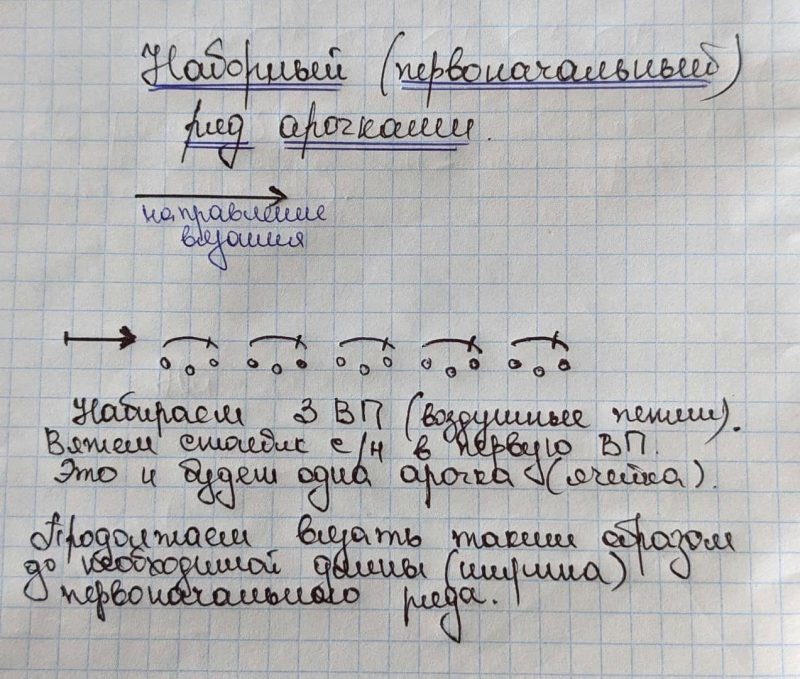 Наборный (первоначальный)
ряд арочками.
направление
вязания
Набираем 3 ВП (воздушные петли).
Вяжем столбик с/н в первую ВП.
Это и будет одна арочка (ячейка).
Продолжаем вязать таким образом
до необходимой длины (ширина)
первоначального ряда.